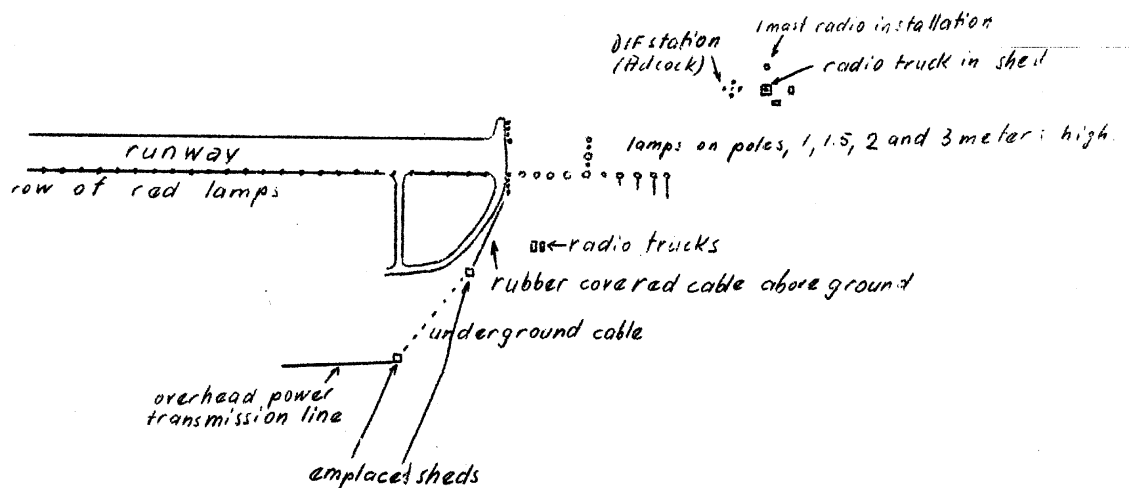 1 mast radio installation
D/F station
(Adcock)
radio truck in shed
lamps on poles, 1, 1.5, 2 and 3 meters high.
runway
row of red lamps
radio trucks
rubber covered cable above ground
underground cable
overhead power
transmission line
emplaced sheds